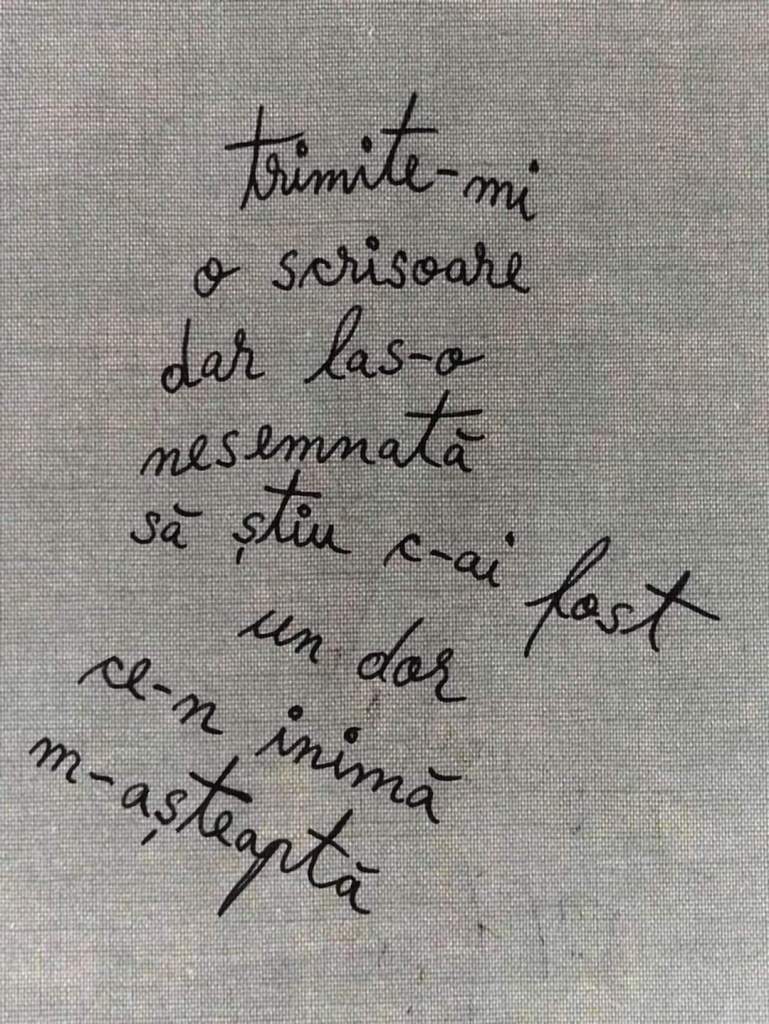 trimite-mi
o scrisoare
dar las-o
nesemnată
să știu c-ai fost
un dor
ce-n inimă
m-așteaptă